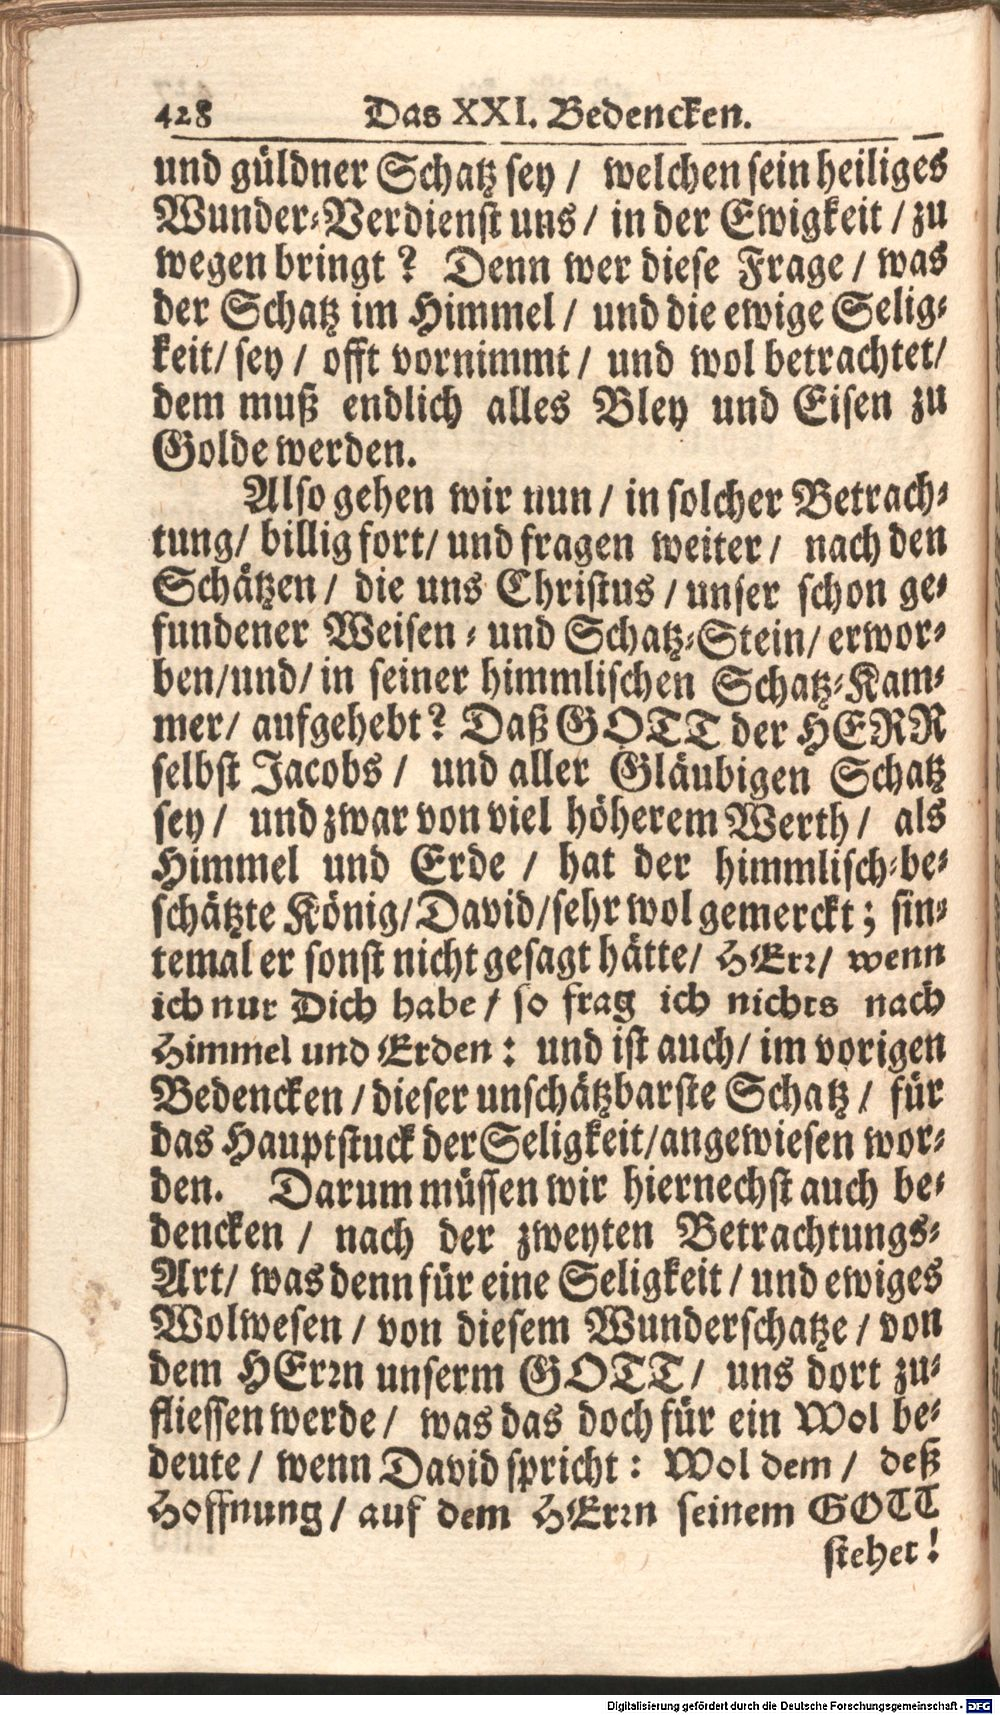 428 Das XXI. Bedencken.
und güldner Schatz sey / welchen sein heiliges
Wunder-Verdienst uns / in der Ewigkeit / zu
wegen bringt? Denn wer diese Frage / was
der Schatz im Himmel / und die ewige Selig-
keit / sey / offt vornimmt / und wol betrachtet /
dem muß endlich alles Bley und Eisen zu
Golde werden.
Also gehen wir nun / in solcher Betrach-
tung / billig fort / und fragen weiter / nach den
Schätzen / die uns Christus / unser schon ge-
fundener Weisen- und Schatz-Stein / erwor-
ben / und / in seiner himmlischen Schatz-Kam-
mer / aufgehebt? Daß GOTT der HERR
selbst Jacobs / und aller Gläubigen Schatz
sey / und zwar von viel höherem Werth / als
Himmel und Erde / hat der himmlisch-be-
schätzte König / David / sehr wol gemerckt; sin-
temal er sonst nicht gesagt hätte / HErr / wenn
ich nur Dich habe / so frag ich nichts nach
Himmel und Erden: und ist auch / im vorigen
Bedencken / dieser unschätzbarste Schatz / für
das Hauptstuck der Seligkeit / angewiesen wor-
den. Darum müssen wir hiernechst auch be-
dencken / nach der zweyten Betrachtungs-
Art / was denn für eine Seligkeit / und ewiges
Wolwesen / von diesem Wunderschatze / von
dem HErrn unserm GOTT / uns dort zu-
fliessen werde / was das doch für ein Wol be-
deute / wenn David spricht: Wol dem / deß
Hoffnung / auf dem HErrn seinem GOTT
stehet!
Digitalisierung gefördert durch die Deutsche Forschungsgemeinschaft - DFG